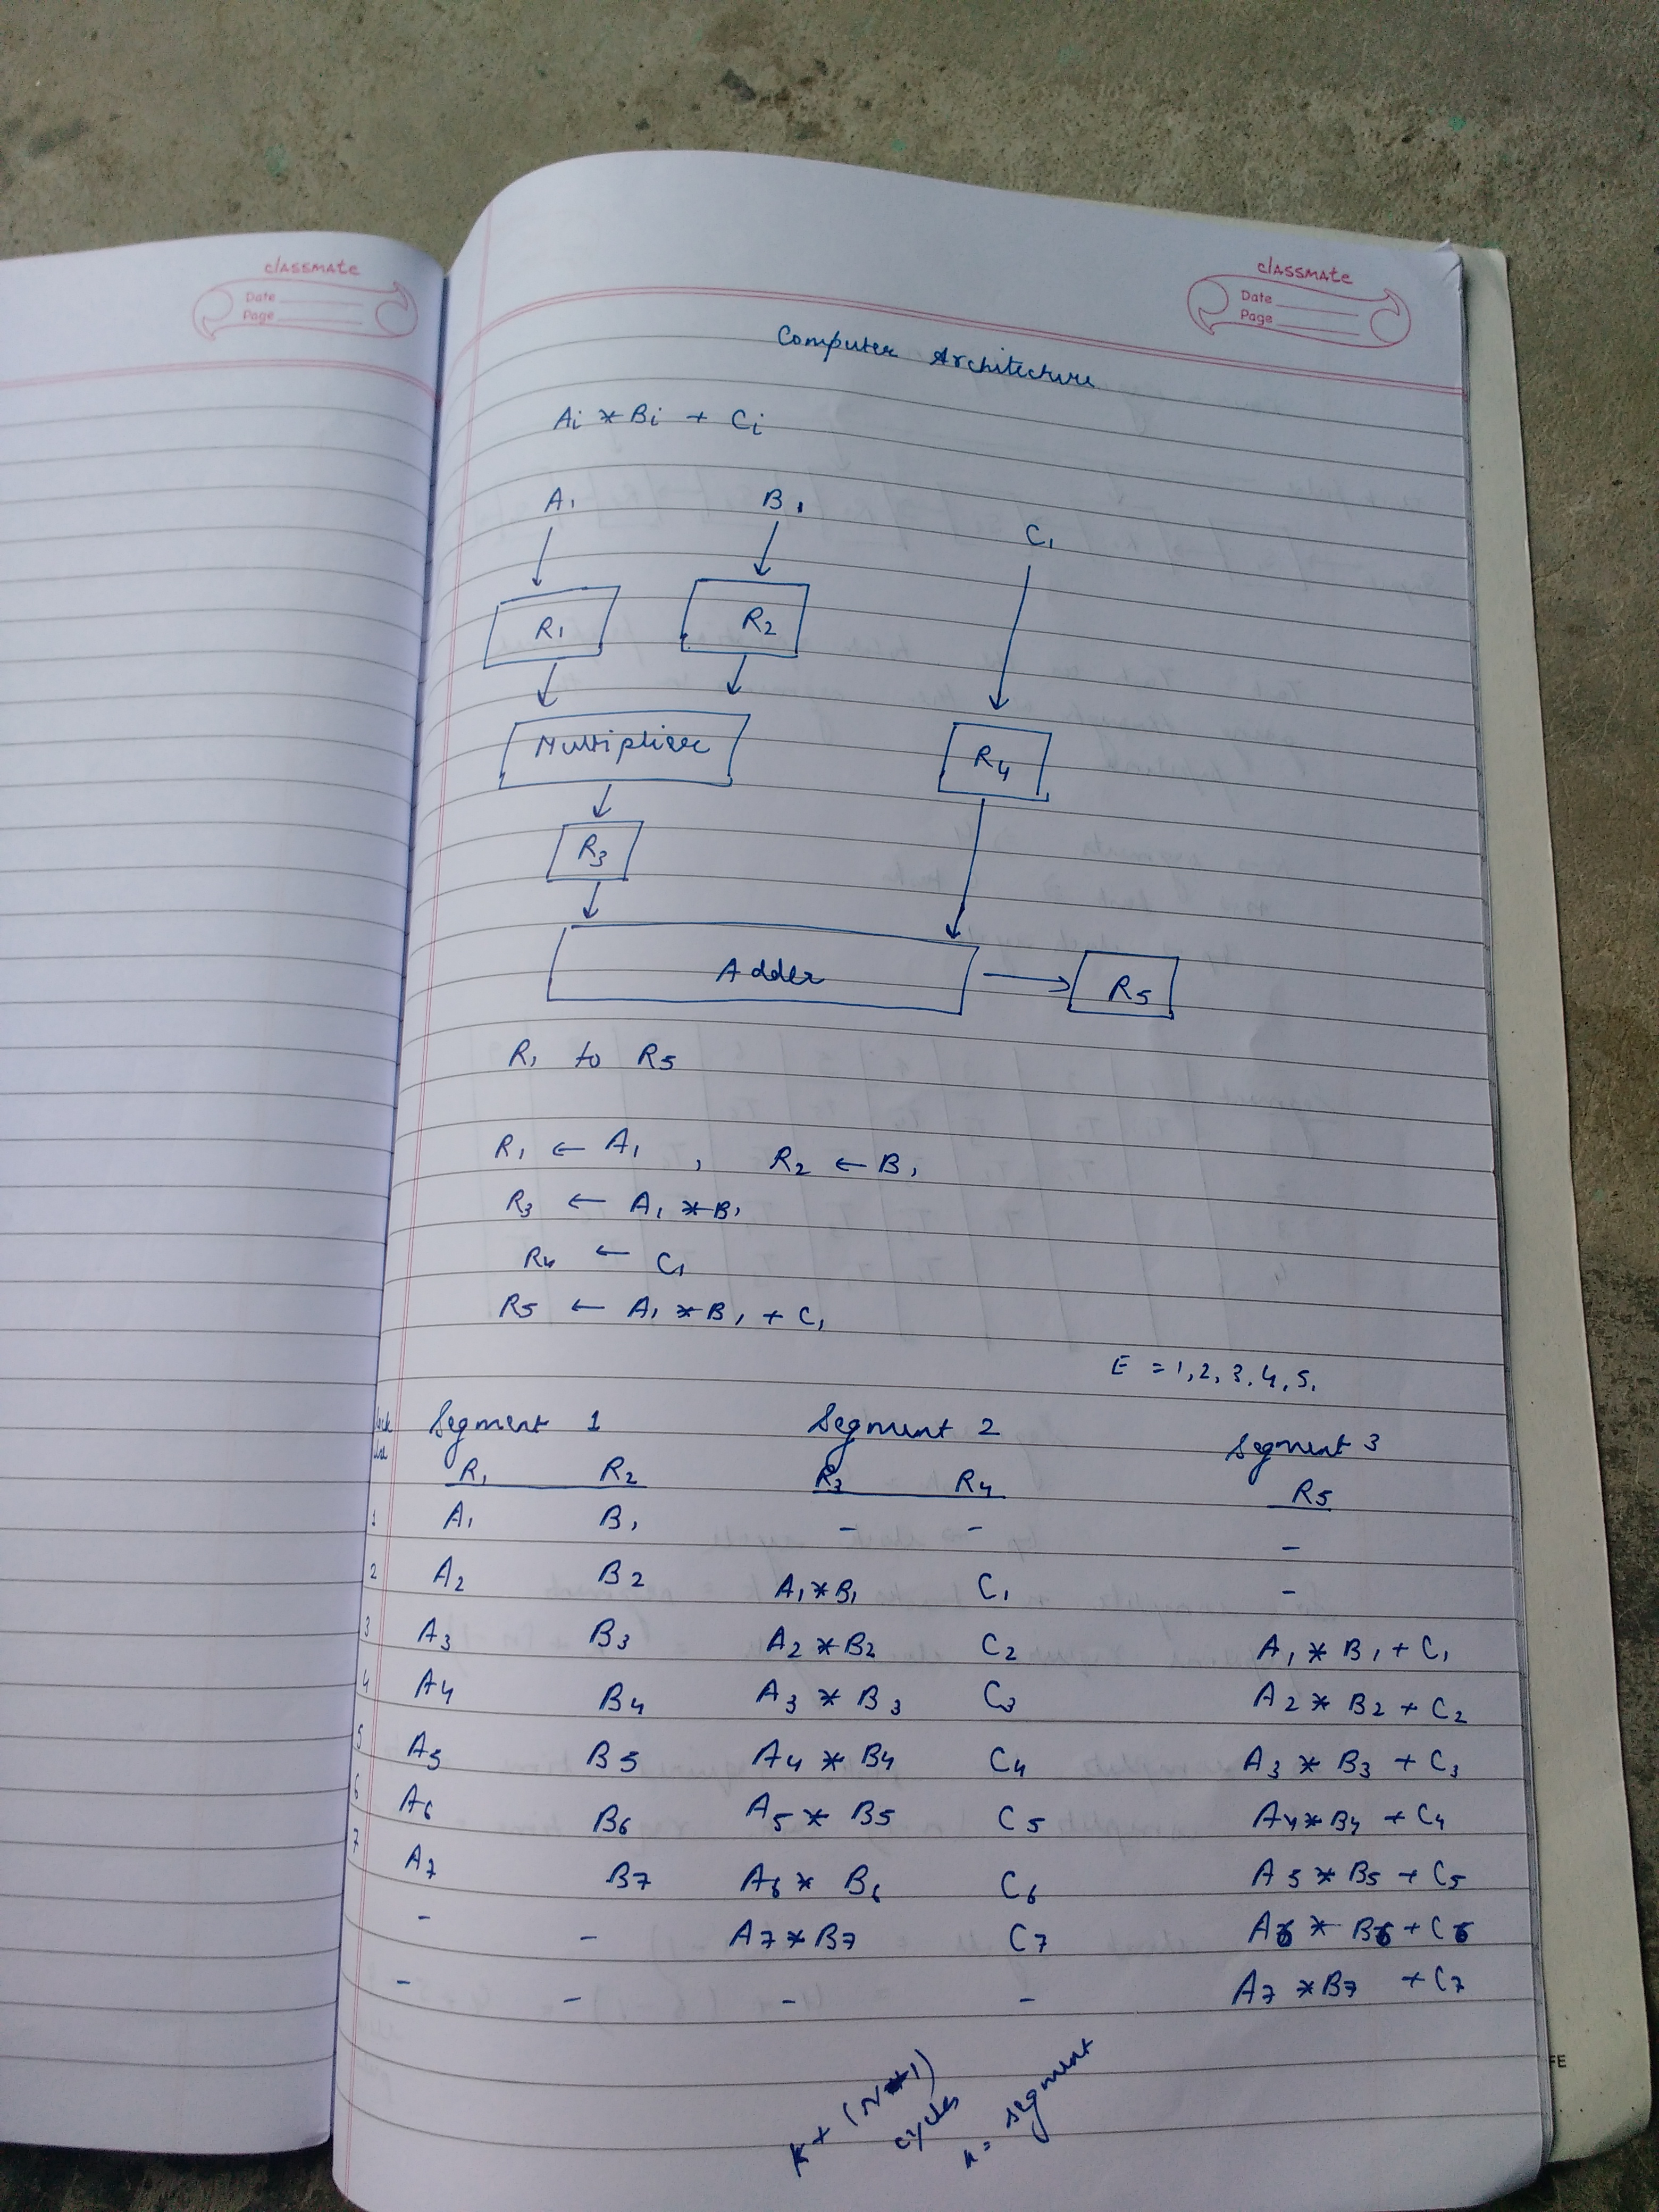 classmate
Date
Page
classmate
Date
Page
Computer Architecture
Ai * Bi + Ci
A1 B1 C1
R1 R2
Multiplier R4
R3
Adder R5
R1 to R5
R1 ← A1 , R2 ← B1
R3 ← A1 * B1
R4 ← C1
R5 ← A1 * B1 + C1
E = 1, 2, 3, 4, 5.
Segment 1 Segment 2 Segment 3
R1 R2 R3 R4 R5
1 A1 B1 - - -
2 A2 B2 A1 * B1 C1 -
3 A3 B3 A2 * B2 C2 A1 * B1 + C1
4 A4 B4 A3 * B3 C3 A2 * B2 + C2
5 A5 B5 A4 * B4 C4 A3 * B3 + C3
6 A6 B6 A5 * B5 C5 A4 * B4 + C4
7 A7 B7 A6 * B6 C6 A5 * B5 + C5
- - A7 * B7 C7 A6 * B6 + C6
- - - - A7 * B7 + C7
cycles
segment
FE